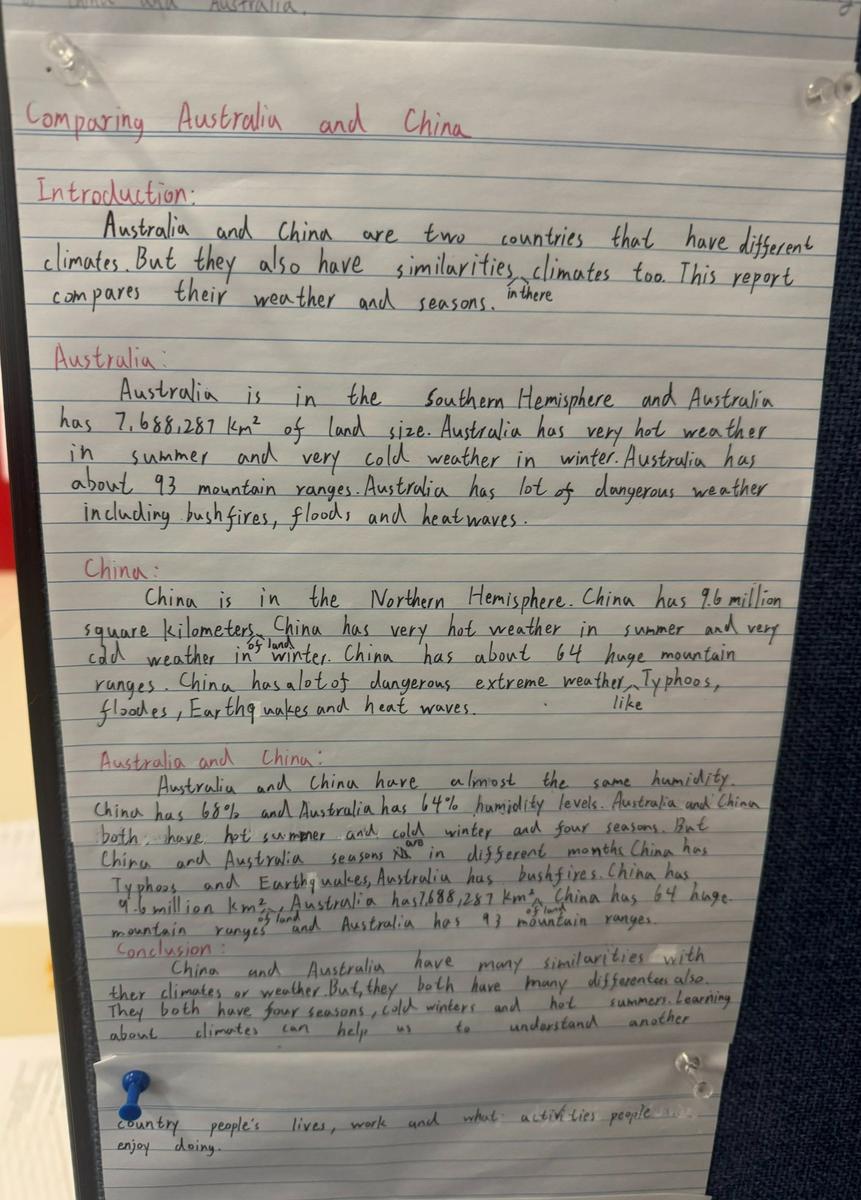 China and Australia.
Comparing Australia and China
Introduction:
Australia and China are two countries that have different
climates. But they also have similarities climates too. This report
in there
compares their weather and seasons.
Australia:
Australia is in the Southern Hemisphere and Australia
has 7,688,287 km² of land size. Australia has very hot weather
in summer and very cold weather in winter. Australia has
about 93 mountain ranges. Australia has lot of dangerous weather
including bushfires, floods and heatwaves.
China:
China is in the Northern Hemisphere. China has 9.6 million
square kilometers China has very hot weather in summer and very
of land
cold weather in winter. China has about 64 huge mountain
ranges. China has a lot of dangerous extreme weather Typhoos,
like
floodes, Earthquakes and heat waves.
Australia and China:
Australia and China have almost the same humidity.
China has 68% and Australia has 64% humidity levels. Australia and China
both have hot summer and cold winter and four seasons. But
are
China and Australia seasons in different months China has
Typhoos and Earthquakes, Australia has bushfires. China has
9.6 million km², Australia has 7,688,287 km², China has 64 huge
of land of land
mountain ranges and Australia has 93 mountain ranges.
Conclusion:
China and Australia have many similarities with
ther climates or weather. But, they both have many differentces also.
They both have four seasons, cold winters and hot summers. Learning
about climates can help us to understand another
country people's lives, work and what activities people
enjoy doing.